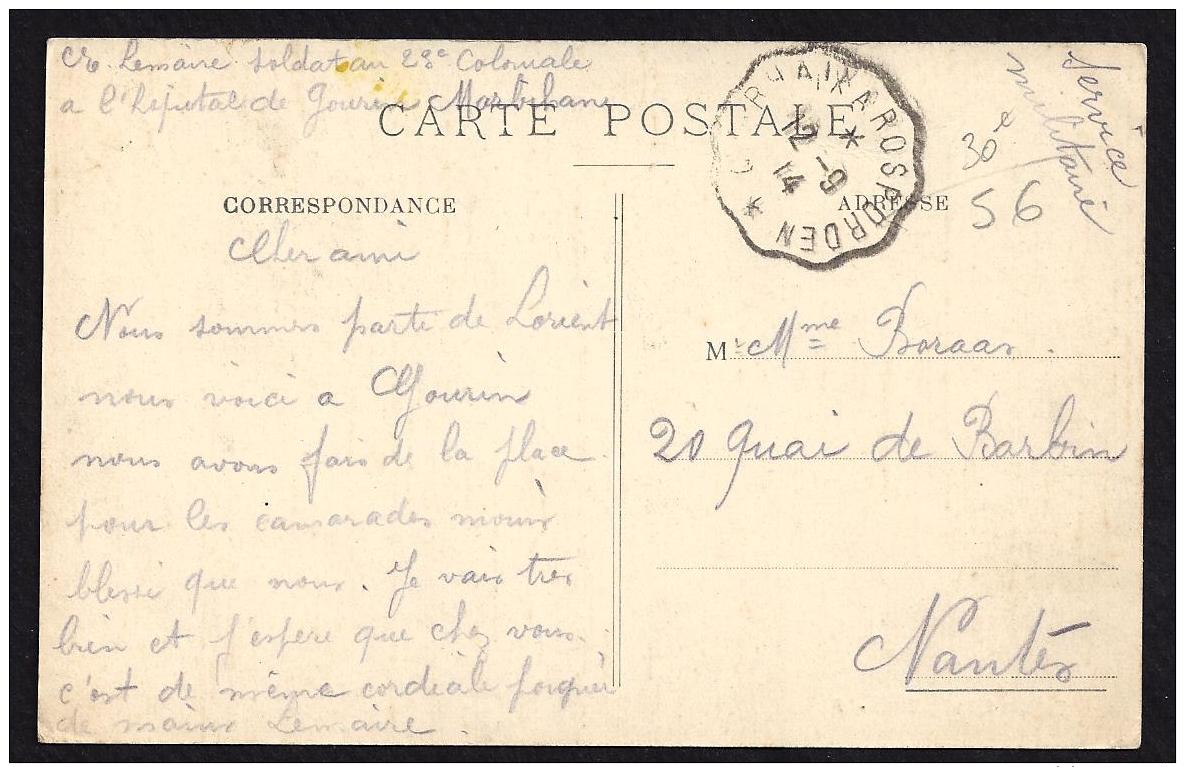 Lemaire soldat au 23e Coloniale
a l'Hopital de Gourin Morbihan
CARTE POSTALE
CARHAIX A ROSPORDEN
12 -9
14
Service
militaire
30e
56
CORRESPONDANCE
ADRESSE
Cher ami
Nous sommes parti de Lorient
nous voici a Gourin
nous avons fais de la place
pour les camarades moins
blessi que nous. Je vais tres
bien et j'espere que chez vous
c'est de même cordiale poigniée
de mains Lemaire.
Mr Mme Boraas.
20 quai de Barbin
Nantes